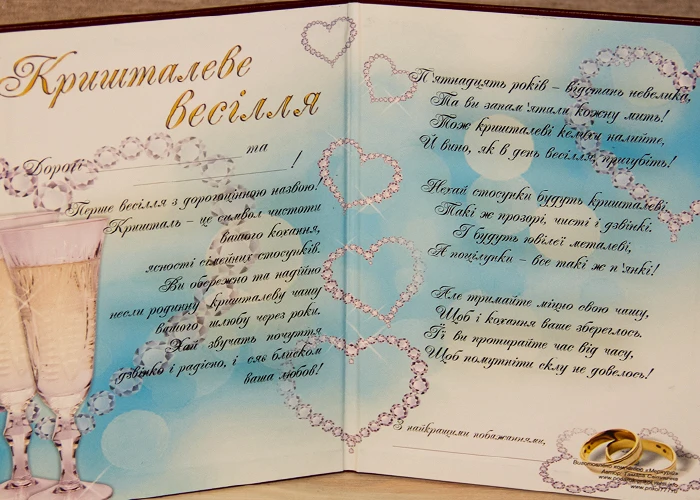 Кришталеве
весілля
Дорогі ____________ та
____________!
Перше весілля з дорогоцінною назвою!
Кришталь – це символ чистоти
вашого кохання,
ясності сімейних стосунків.
Ви обережно та надійно
несли родинну кришталеву чашу
вашого шлюбу через роки.
Хай звучать почуття
дзвінко і радісно, і сяє блиском
ваша любов!
П'ятнадцять років – відстань невелика,
Та ви запам'ятали кожну мить!
Тож кришталеві келихи налийте,
Й вино, як в день весілля, пригубіть!
Нехай стосунки будуть кришталеві,
Такі ж прозорі, чисті і дзвінкі.
І будуть ювілеї металеві,
А поцілунки – все такі ж п'янкі!
Але тримайте міцно свою чашу,
Щоб і кохання ваше збереглось.
Її ви протирайте час від часу,
Щоб помутніти склу не довелось!
З найкращими побажаннями,